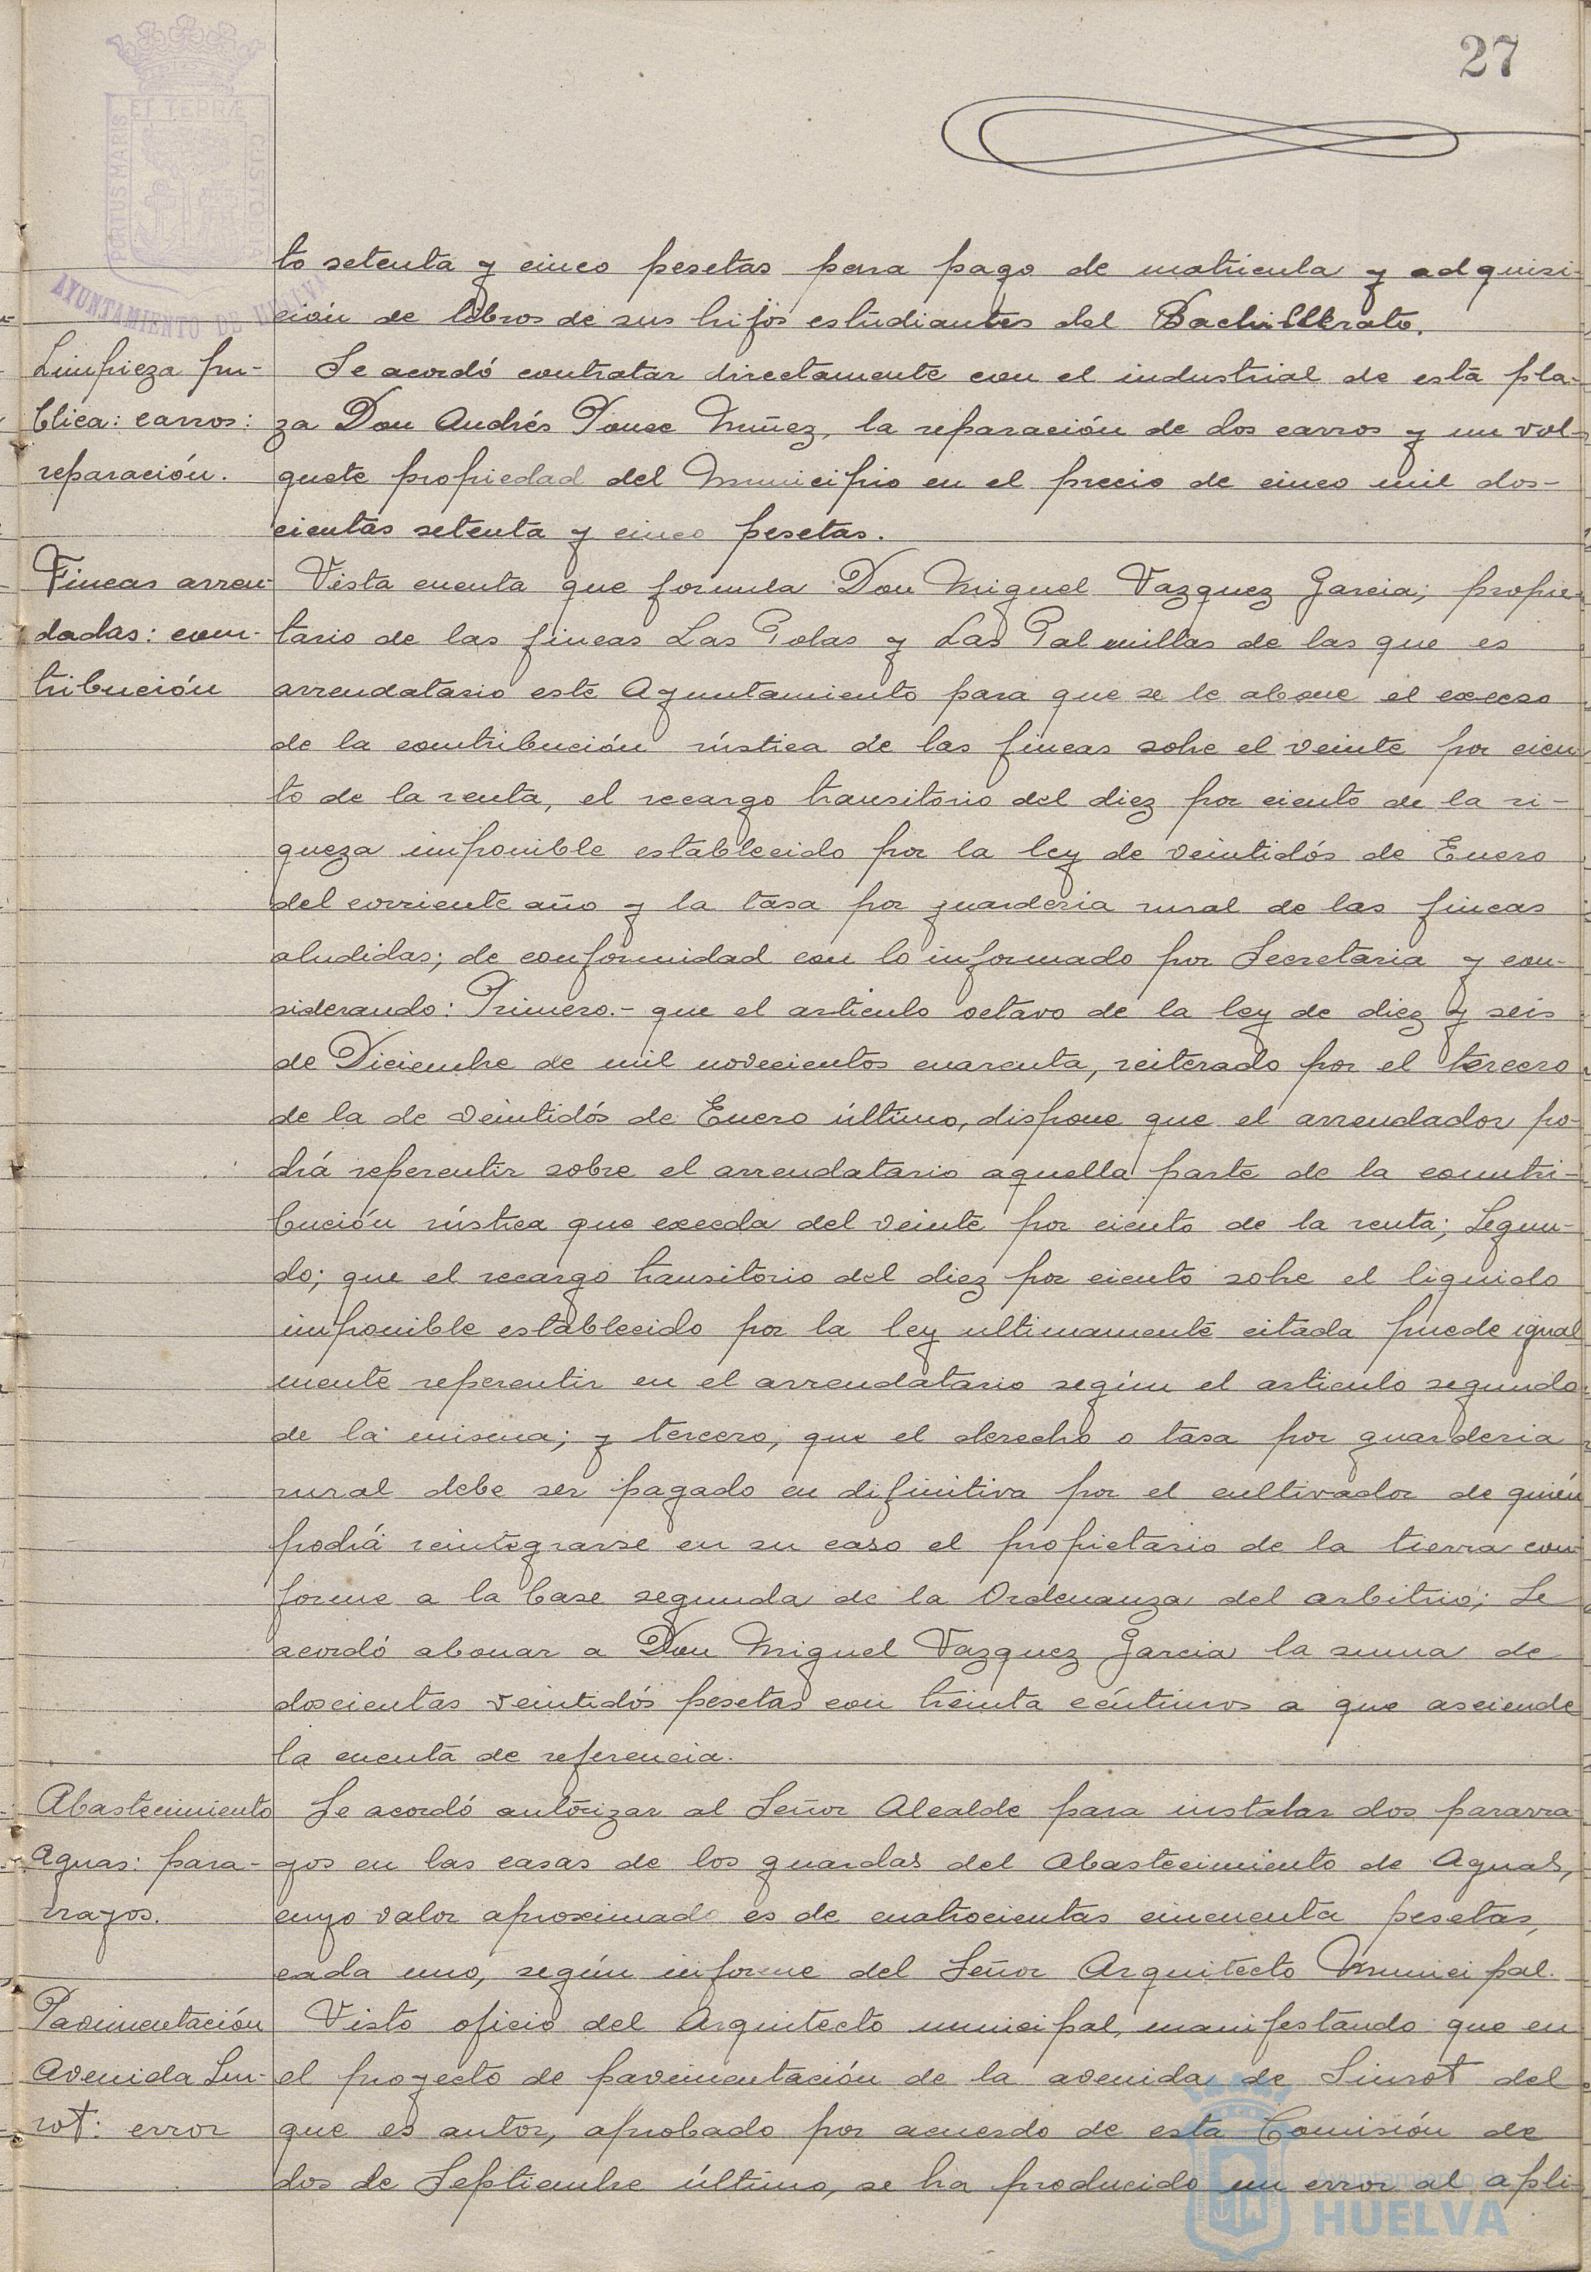 27
PORTUS MARIS ET TERRÆ CUSTODIA
AYUNTAMIENTO DE HUELVA
to setenta y cinco pesetas para pago de matricula y adquisi-
ción de libros de sus hijos estudiantes del Bachillerato.
Limpieza pú-
blica: carros:
reparación.
Se acordó contratar directamente con el industrial de esta pla-
za Don Andrés Ponce Muñez, la reparación de dos carros y un vol-
quete propiedad del Municipio en el precio de cinco mil dos-
cientas setenta y cinco pesetas.
Fincas arren-
dadas: con-
tribución
Vista cuenta que formula Don Miguel Vazquez Garcia, propie-
tario de las fincas Las Polas y Las Palmillas de las que es
arrendatario este Ayuntamiento para que se le abone el exceso
de la contribución rústica de las fincas sobre el veinte por cien-
to de la renta, el recargo transitorio del diez por ciento de la ri-
queza imponible establecido por la ley de veintidós de Enero
del corriente año y la tasa por guarderia rural de las fincas
aludidas; de conformidad con lo informado por Secretaria y con-
siderando: Primero.- que el articulo octavo de la ley de diez y seis
de Diciembre de mil novecientos cuarenta, reiterado por el tercero
de la de veintidós de Enero último, dispone que el arrendador po-
drá repercutir sobre el arrendatario aquella parte de la countri-
bución rústica que exceda del veinte por ciento de la renta; Segun-
do; que el recargo transitorio del diez por ciento sobre el liquido
imponible establecido por la ley ultimamente citada puede igual
mente repercutir en el arrendatario según el articulo segundo
de la misma; y tercero, que el derecho o tasa por guarderia
rural debe ser pagado en difinitiva por el cultivador de quién
podrá reintegrarse en su caso el propietario de la tierra con-
forme a la base segunda de la Ordenanza del arbitrio; Se
acordó abonar a Don Miguel Vazquez Garcia la suma de
doscientas veintidós pesetas con treinta céntimos a que asciende
la cuenta de referencia.
Abastecimiento
Aguas: para-
rrayos.
Se acordó autorizar al Señor Alcalde para instalar dos pararra-
yos en las casas de los guardas del Abastecimiento de Aguas,
cuyo valor aproximado es de cuatrocientas cincuenta pesetas,
cada uno, según informe del Señor Arquitecto Municipal.
Pavimentación
Avenida Sun-
rot: error
Visto oficio del Arquitecto municipal, manifestando que en
el proyecto de pavimentación de la avenida de Sinrot del
que es autor, aprobado por acuerdo de esta Comisión de
dos de Septiembre último, se ha producido un error al apli-
Ayuntamiento de
HUELVA